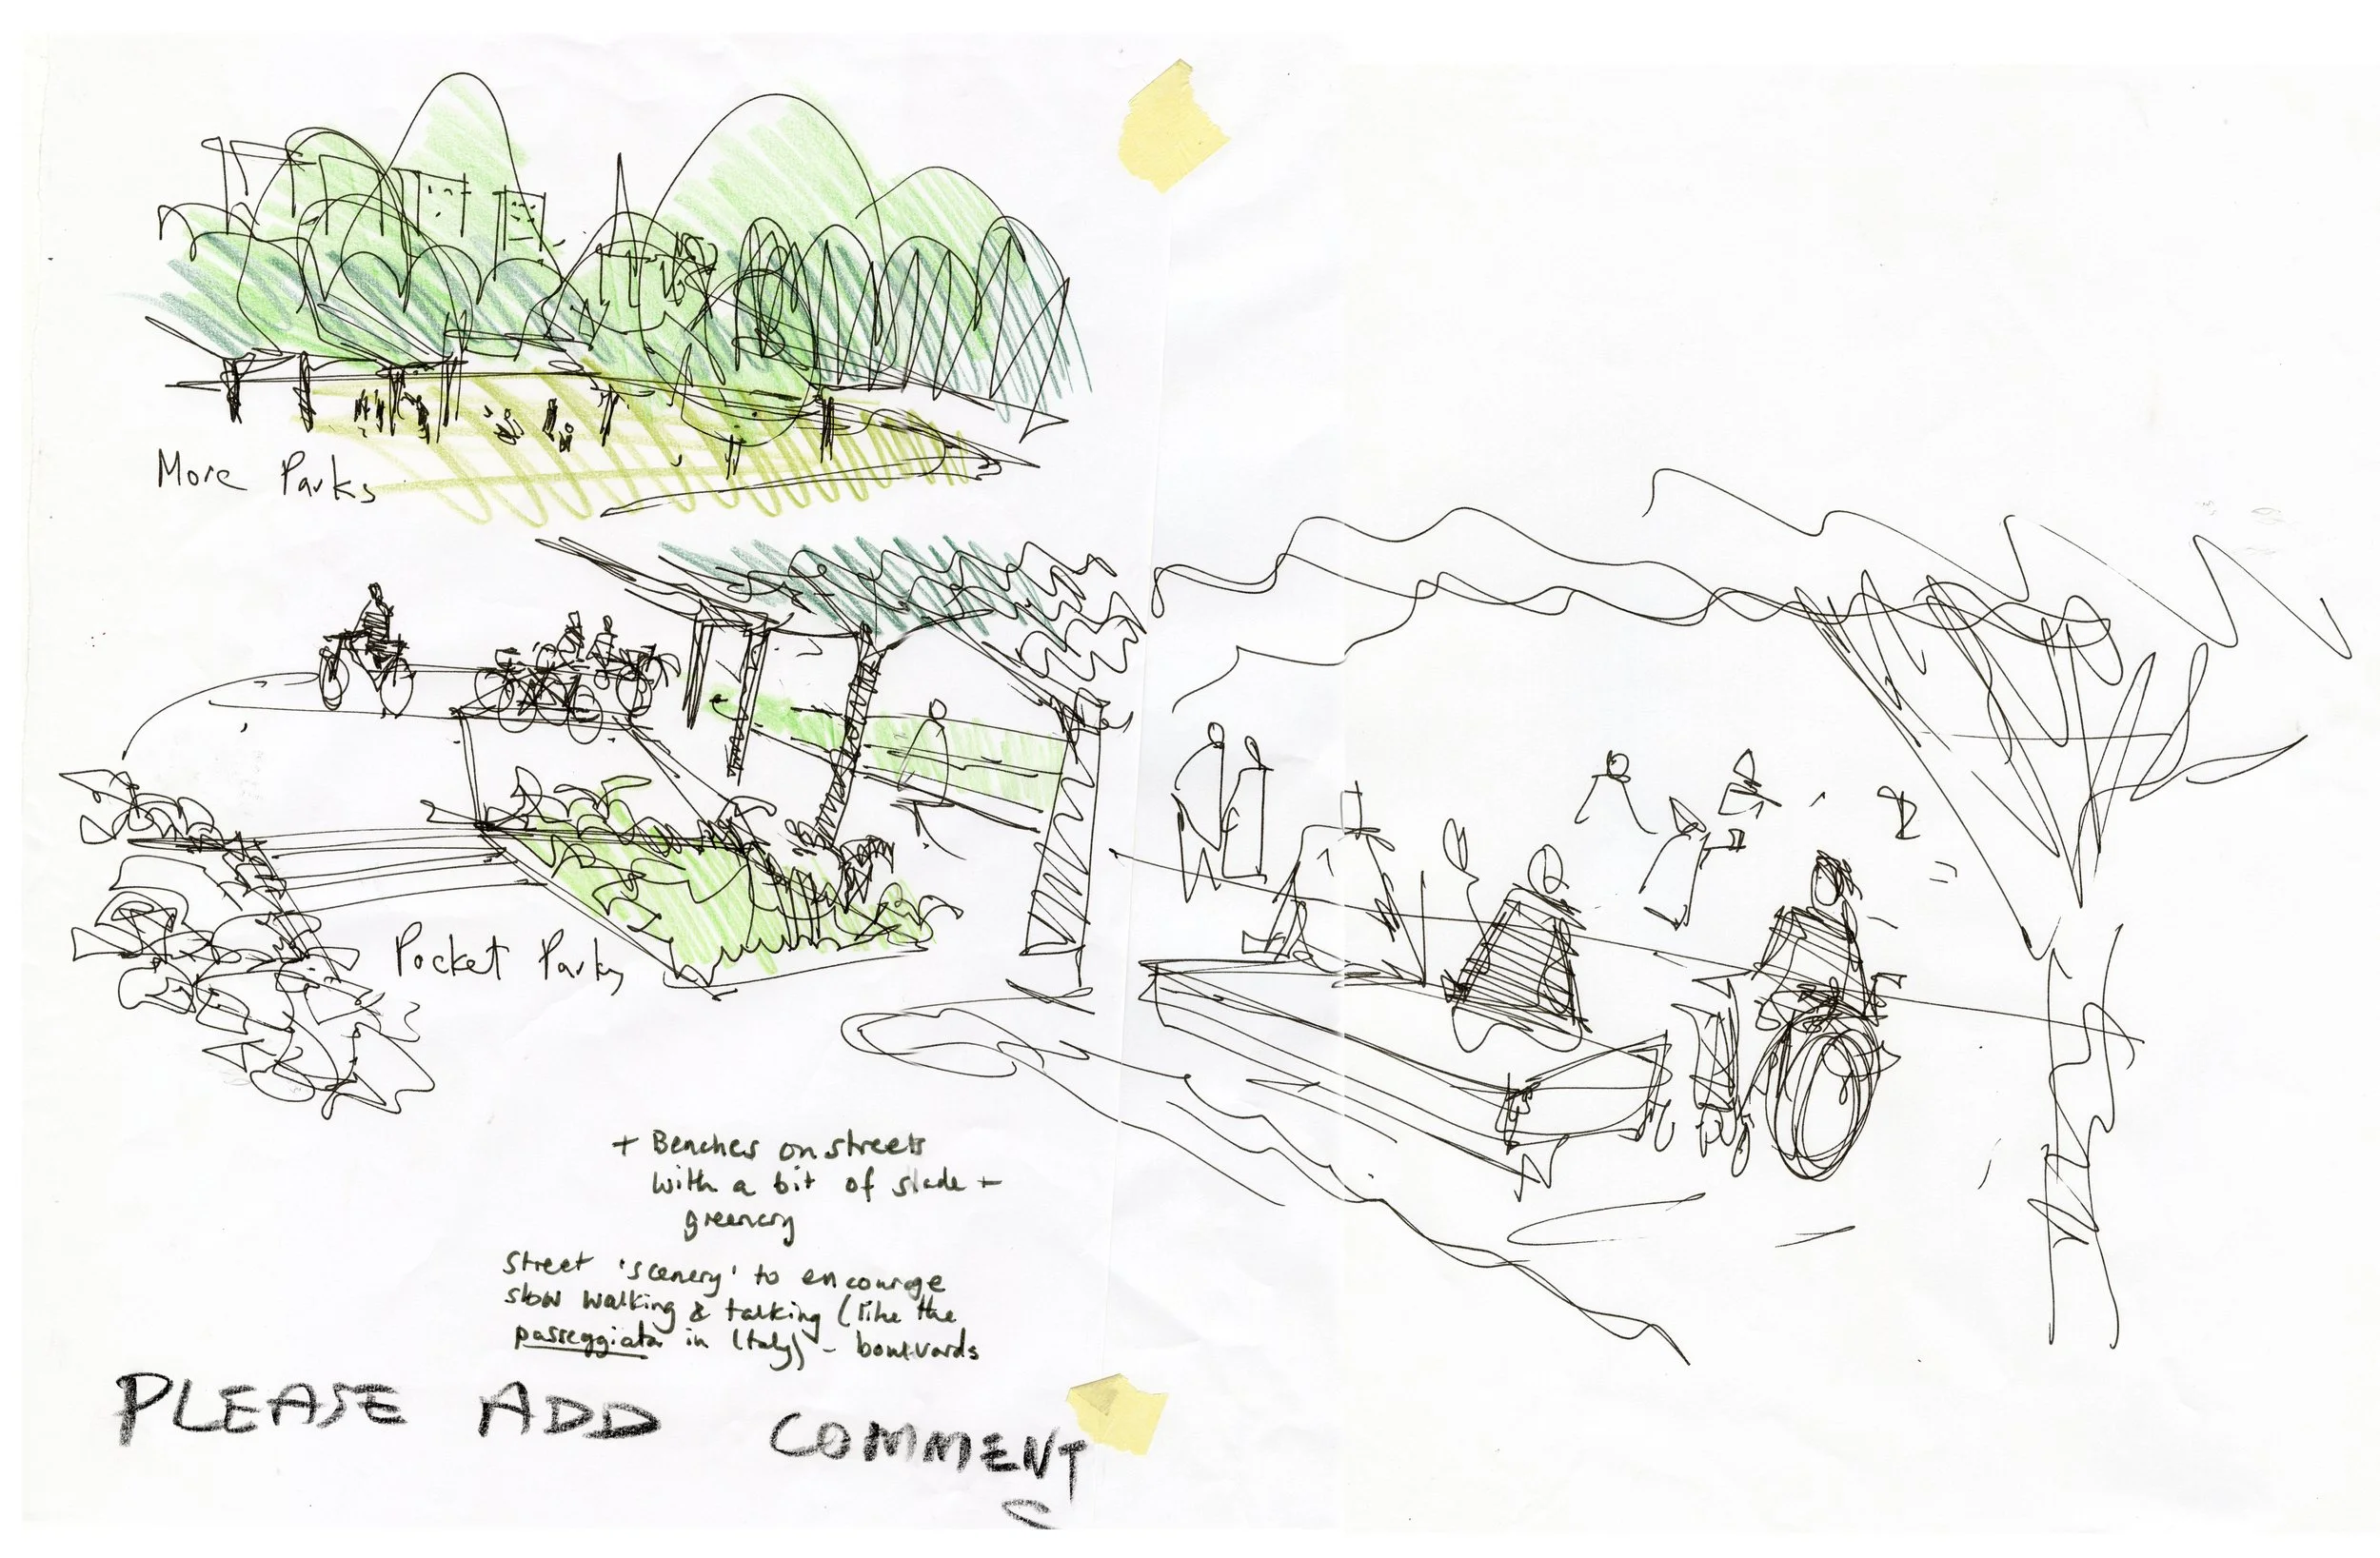 More Parks
Pocket Parks
+ Benches on streets
with a bit of shade +
greenery
Street 'scenery' to encourage
slow walking & talking (like the
passeggiata in Italy) - boulevards
PLEASE ADD COMMENT